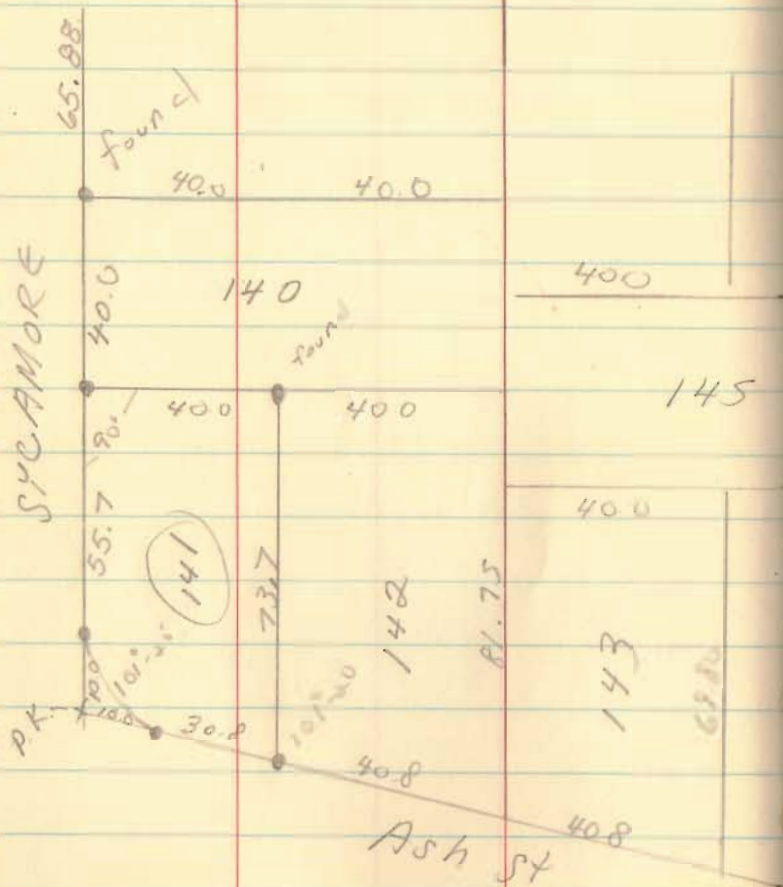 65.88
found
40.0 40.0
SYCAMORE
40.0
140
400
found
90°
400 400
145
55.7
141
73.7
142
81.75
400
143
P.K.
10.0
101°-20'
10.0
30.8
101°-20
40.8
40.8
Ash St